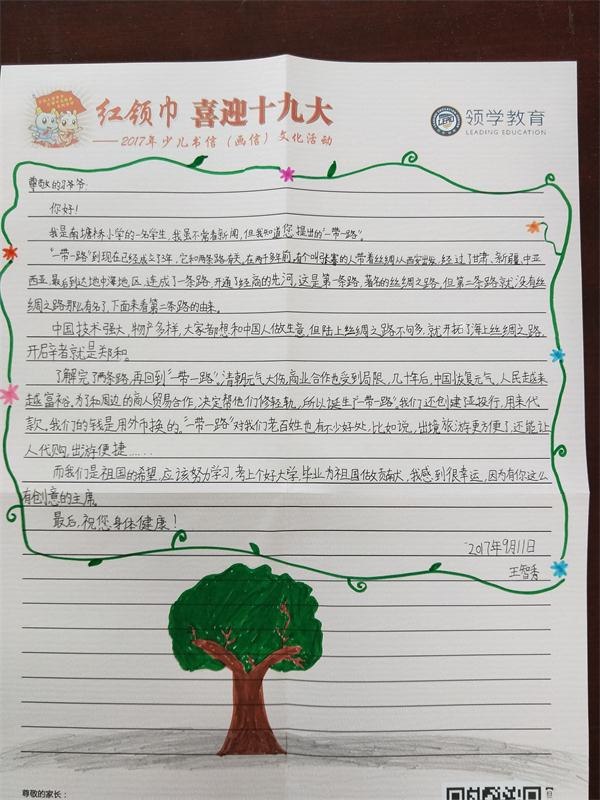 红领巾 喜迎十九大
——2017年少儿书信（画信）文化活动
领学教育
LEADING EDUCATION
尊敬的习爷爷:
你好!
我是南塘桥小学的一名学生,我虽不常看新闻,但我知道您提出的“一带一路”。
“一带一路”到现在已经成立了3年,它和两条路有关,在两千多年前,有个叫张骞的人带着丝绸从西安出发,经过了甘肃、新疆、中亚
西亚,最后到达地中海地区,连成了一条路,开通了经商的先河,这是第一条路,著名的丝绸之路,但第二条路就没有丝
绸之路那么有名了,下面来看第二条路的由来。
中国技术强大,物产多样,大家都想和中国人做生意,但陆上丝绸之路不句多,就开拓了海上丝绸之路,
开辟者就是郑和。
了解完了两条路,再回到“一带一路”。清朝元气大伤,商业合作也受到局限,几十年后,中国恢复元气,人民越来
越富裕,为了和周边的商人贸易合作,决定帮他们修轻轨,所以诞生了“一带一路”。我们还创建亚投行,用来代
款,我们的钱是用外币换的。“一带一路”对我们老百姓也有不少好处,比如说,出境旅游更方便了,还能让
人代购,出游便捷……
而我们是祖国的希望,应该努力学习,考上个好大学,毕业为祖国做贡献,我感到很幸运,因为有你这么
有创意的主席。
最后,祝您身体健康!
2017年9月11日
王智秀
尊敬的家长：